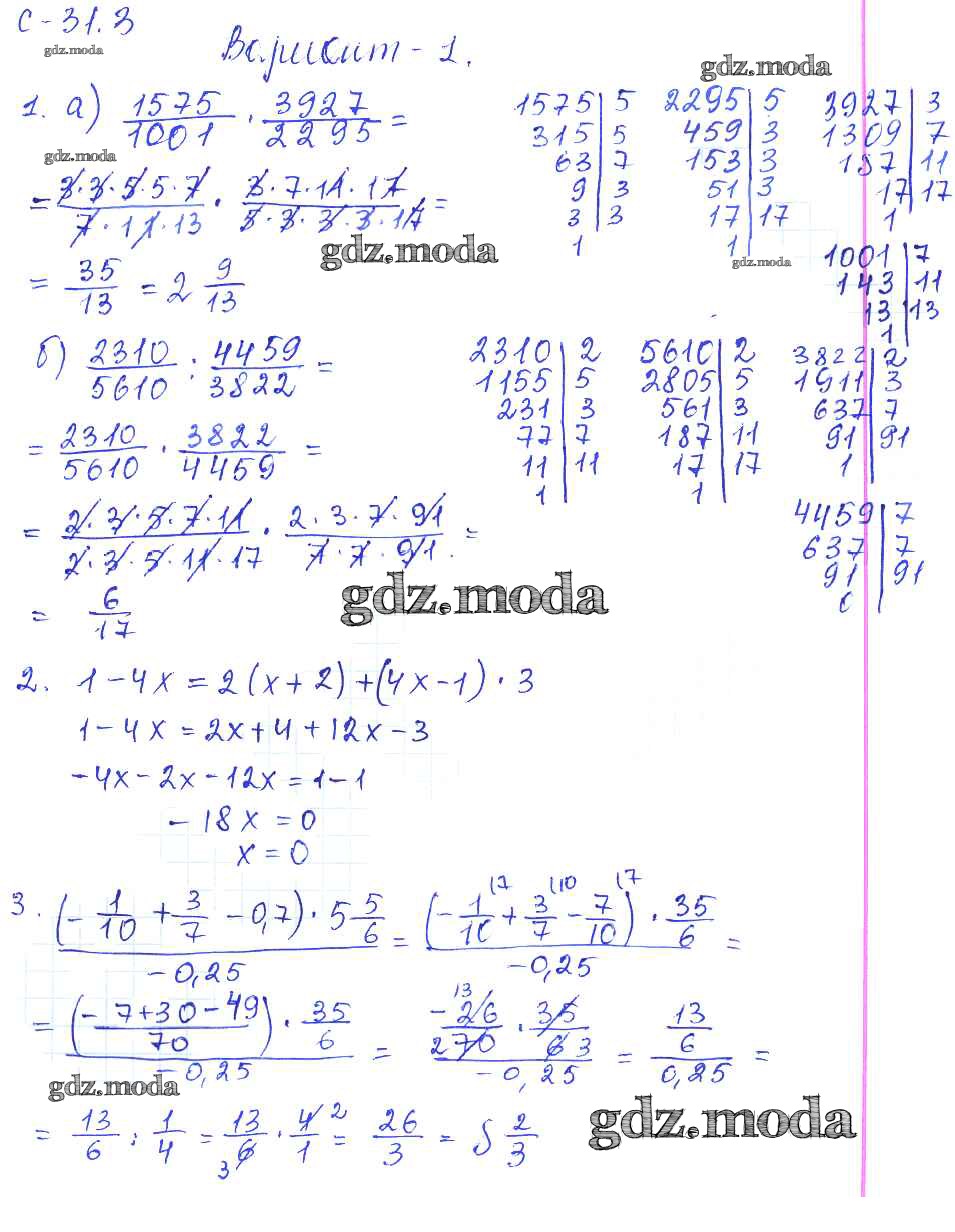 С-31.3
gdz.moda
Вариант-1.
gdz.moda
1. а) 1575/1001 · 3927/2295 =
gdz.moda
= 3·3·5·5·7/7·11·13 · 3·7·11·17/5·3·3·3·17 =
gdz.moda
= 35/13 = 2 9/13
1575 | 5
315 | 5
63 | 7
9 | 3
3 | 3
1
2295 | 5
459 | 3
153 | 3
51 | 3
17 | 17
1
gdz.moda
3927 | 3
1309 | 7
187 | 11
17 | 17
1
1001 | 7
143 | 11
13 | 13
1
б) 2310/5610 : 4459/3822 =
= 2310/5610 · 3822/4459 =
= 2·3·5·7·11/2·3·5·11·17 · 2·3·7·91/7·7·91. =
= 6/17
gdz.moda
2310 | 2
1155 | 5
231 | 3
77 | 7
11 | 11
1
5610 | 2
2805 | 5
561 | 3
187 | 11
17 | 17
1
3822 | 2
1911 | 3
637 | 7
91 | 91
1
4459 | 7
637 | 7
91 | 91
0
2. 1-4x = 2(x+2)+(4x-1)·3
1-4x = 2x+4+12x-3
-4x-2x-12x = 1-1
-18x = 0
x = 0
3. (-1/10 + 3/7 - 0,7) · 5 5/6 / -0,25 = (-1/10 (7 + 3/7 (10 - 7/10 (7) · 35/6 / -0,25 =
= (-7+30-49/70) · 35/6 / -0,25 = -26 13/270 · 35/6 3 / -0,25 = 13/6 / 0,25 =
gdz.moda
= 13/6 : 1/4 = 13/6 3 · 4 2/1 = 26/3 = 8 2/3
gdz.moda